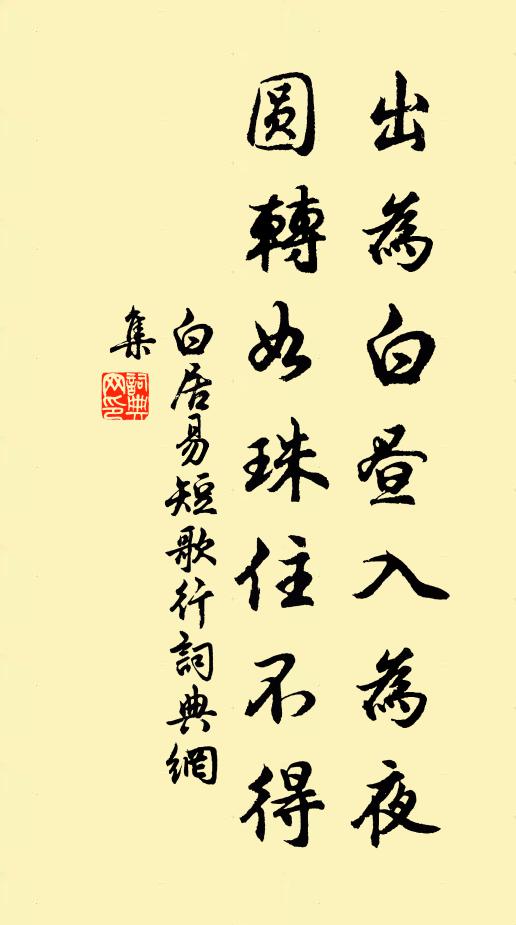 出為白昼入為夜
圆轉如珠住不得
白居易短歌行詞典網
集
詞典
网印